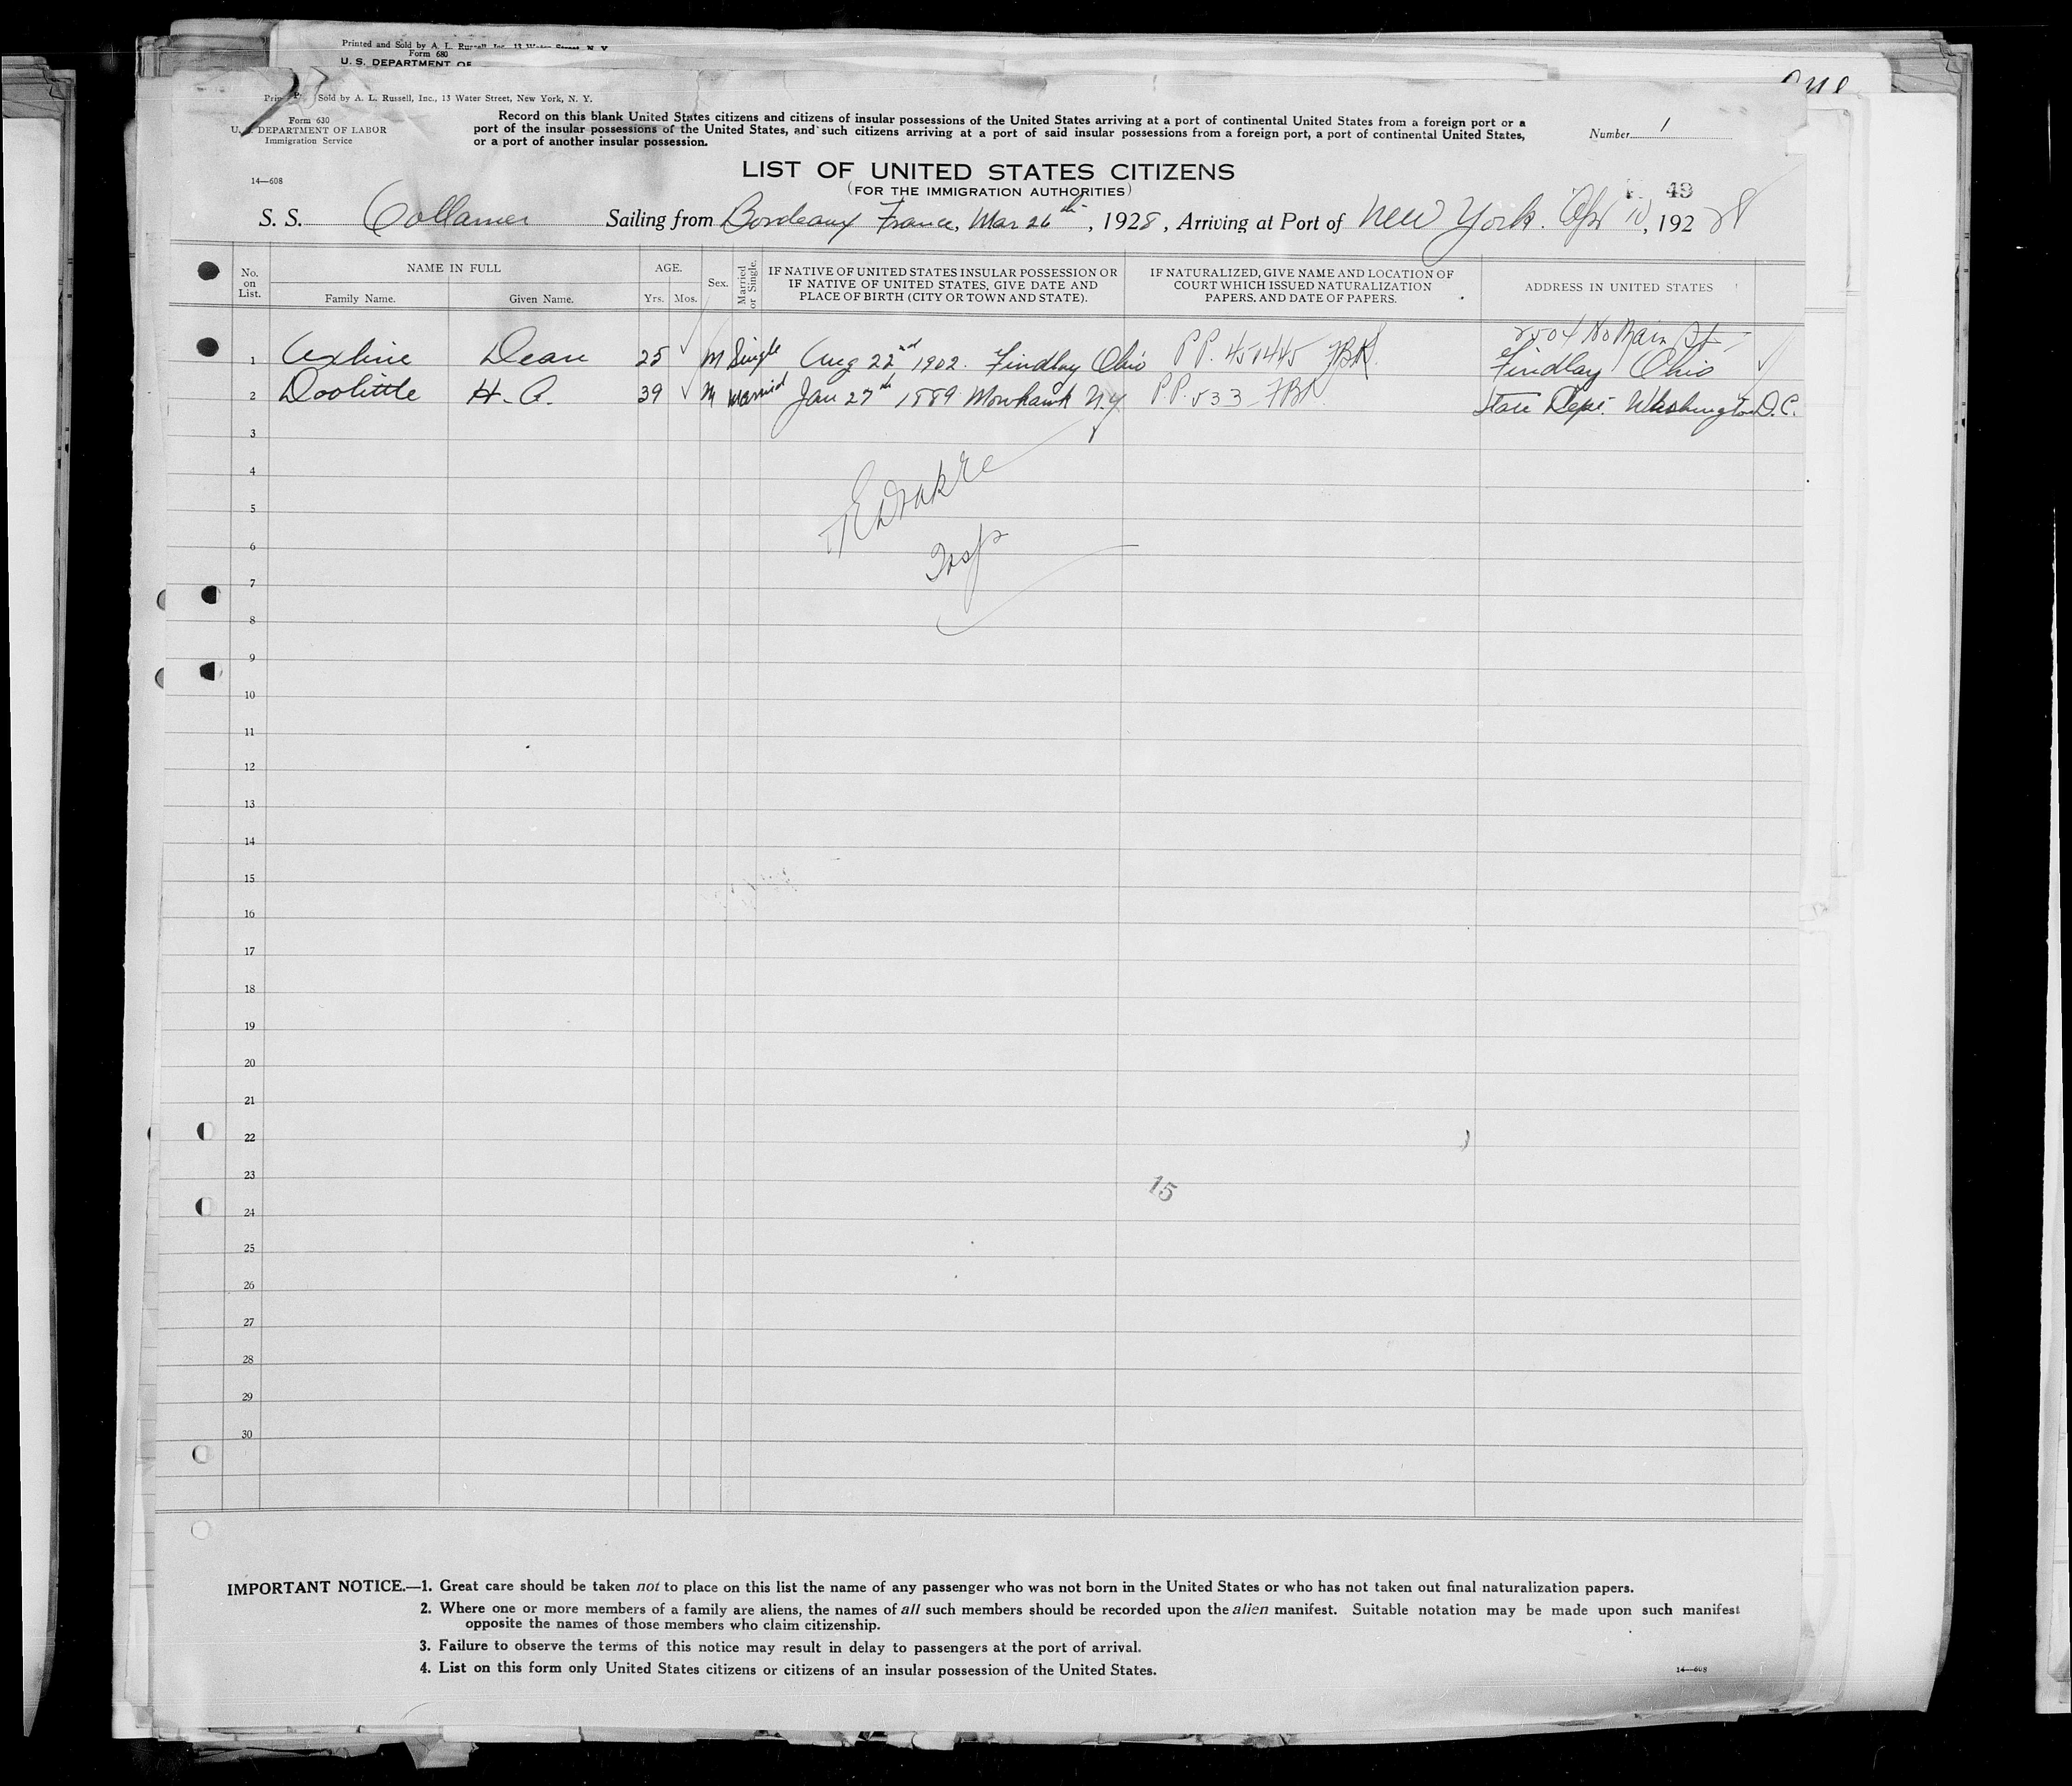 Printed and Sold by A. L. Russell, Inc. 13 Water Street, N. Y.
Form 680
U. S. DEPARTMENT OF
Sold by A. L. Russell, Inc., 13 Water Street, New York, N. Y.
Form 630
U. S. DEPARTMENT OF LABOR
Immigration Service
14—608
Record on this blank United States citizens and citizens of insular possessions of the United States arriving at a port of continental United States from a foreign port or a
port of the insular possessions of the United States, and such citizens arriving at a port of said insular possessions from a foreign port, a port of continental United States,
or a port of another insular possession.
Number 1
LIST OF UNITED STATES CITIZENS
(FOR THE IMMIGRATION AUTHORITIES)
49
S. S. Collamer Sailing from Bordeaux France, Mar 26th, 1928, Arriving at Port of New York. Apr 10, 192 28
No. on List. NAME IN FULL AGE. Sex. Married or Single. IF NATIVE OF UNITED STATES INSULAR POSSESSION OR IF NATIVE OF UNITED STATES, GIVE DATE AND PLACE OF BIRTH (CITY OR TOWN AND STATE). IF NATURALIZED, GIVE NAME AND LOCATION OF COURT WHICH ISSUED NATURALIZATION PAPERS, AND DATE OF PAPERS. ADDRESS IN UNITED STATES
Family Name. Given Name. Yrs. Mos.
2504 No Main St
1 Axline Dean 25 M Single Aug 22nd 1902. Findlay Ohio PP. 451445 Findlay Ohio
2 Doolittle H. A. 39 M Married Jan 27th 1889 Mowhawk N.Y P.P. 533 State Dept. Washington D.C.
3
4
5
6
Insp
7
8
9
10
11
12
13
14
15
16
17
18
19
20
21
22
23
15
24
25
26
27
28
29
30
IMPORTANT NOTICE.—1. Great care should be taken not to place on this list the name of any passenger who was not born in the United States or who has not taken out final naturalization papers.
2. Where one or more members of a family are aliens, the names of all such members should be recorded upon the alien manifest. Suitable notation may be made upon such manifest
opposite the names of those members who claim citizenship.
3. Failure to observe the terms of this notice may result in delay to passengers at the port of arrival.
4. List on this form only United States citizens or citizens of an insular possession of the United States.
14—608